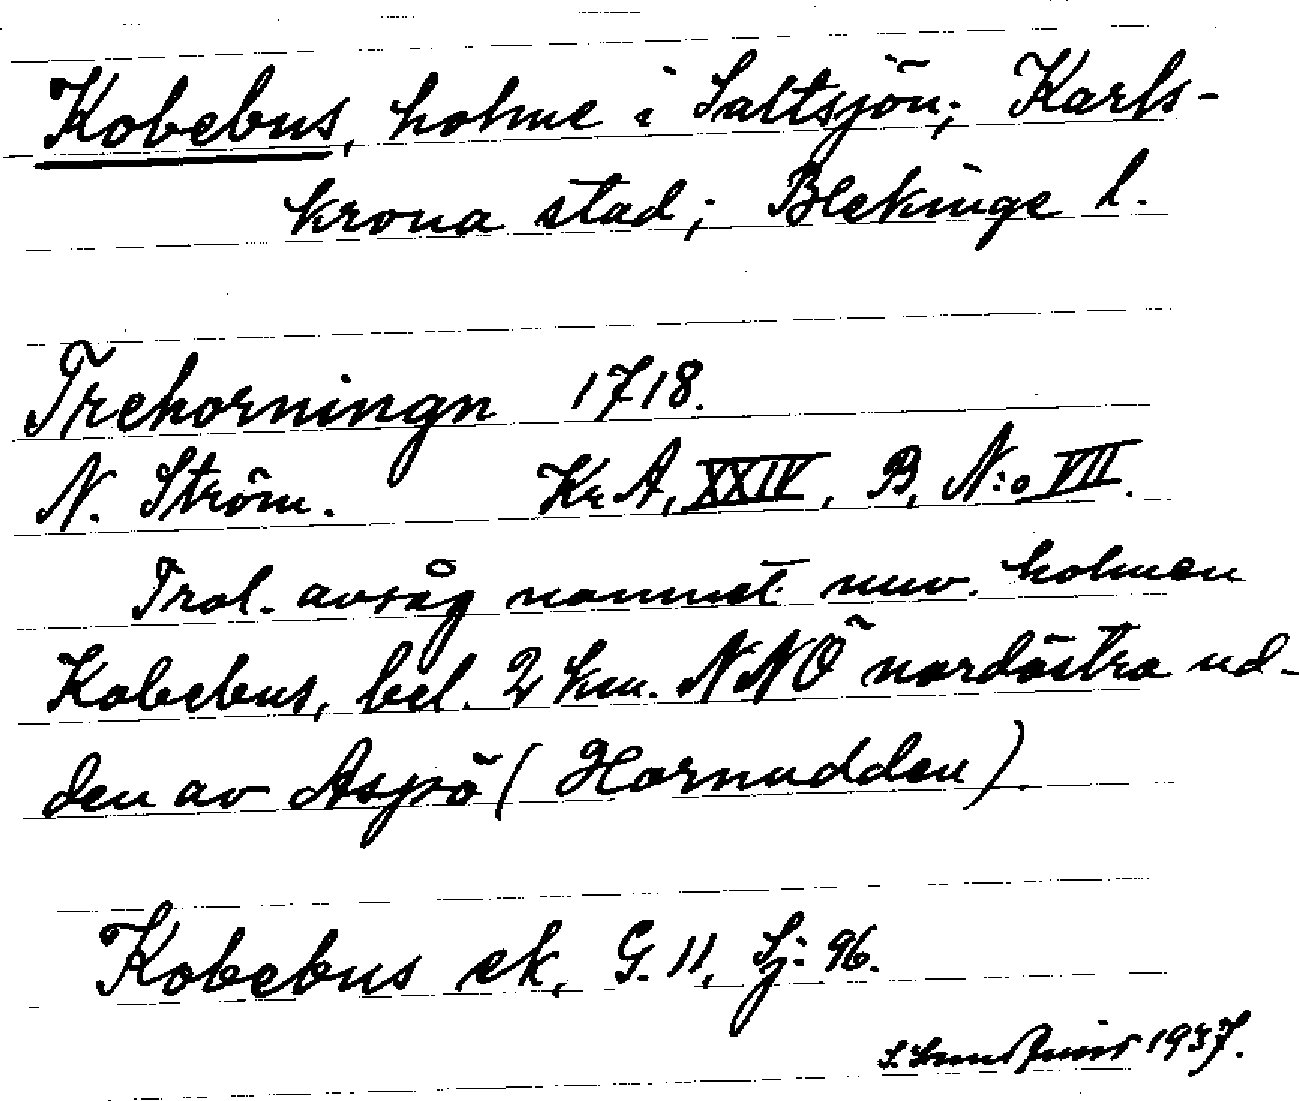 Kobebus, holme i Saltsjön; Karls-
krona stad; Blekinge l.
Trehorningn 1718.
N. Ström. Kr A, XXIV, B, N:o VII.
Trol. avsåg namnet nuv. holmen
Kobebus, bel. 2 km. NNÖ nordöstra ud-
den av Aspö (Hornudden).
Kobebus ek, G. 11, Sj: 96.
1937.